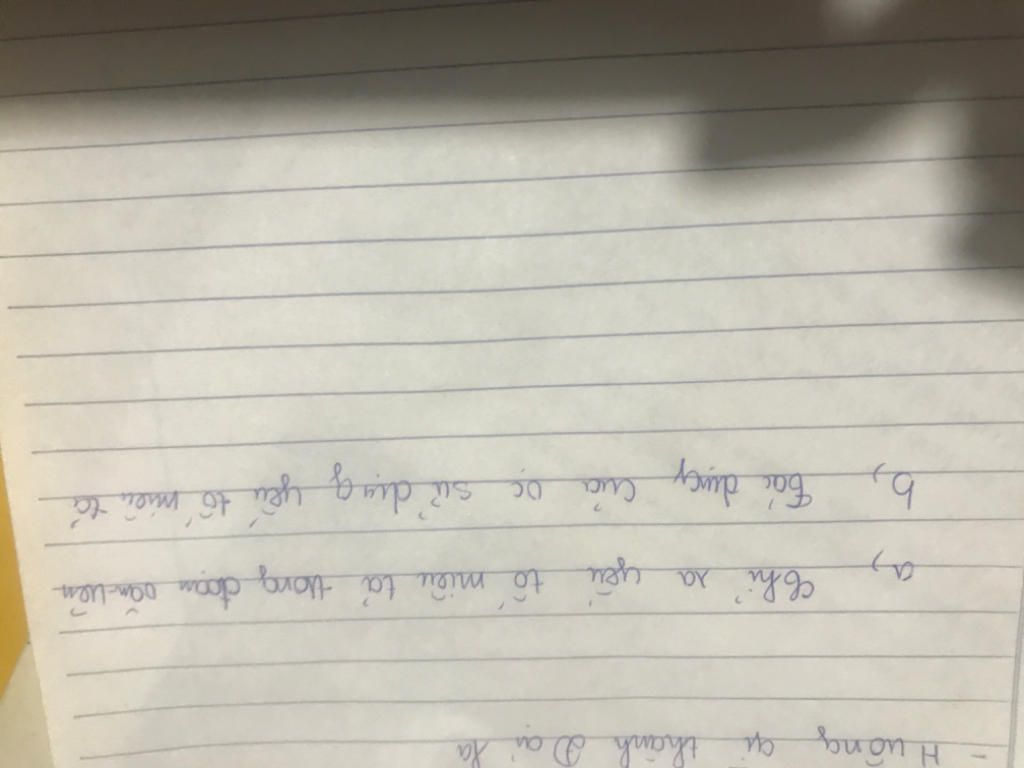 - Huống gì thành Đại La
a, Chỉ ra yếu tố miêu tả trong đoạn văn trên
b, Tác dụng của vc sử dụng yếu tố miêu tả